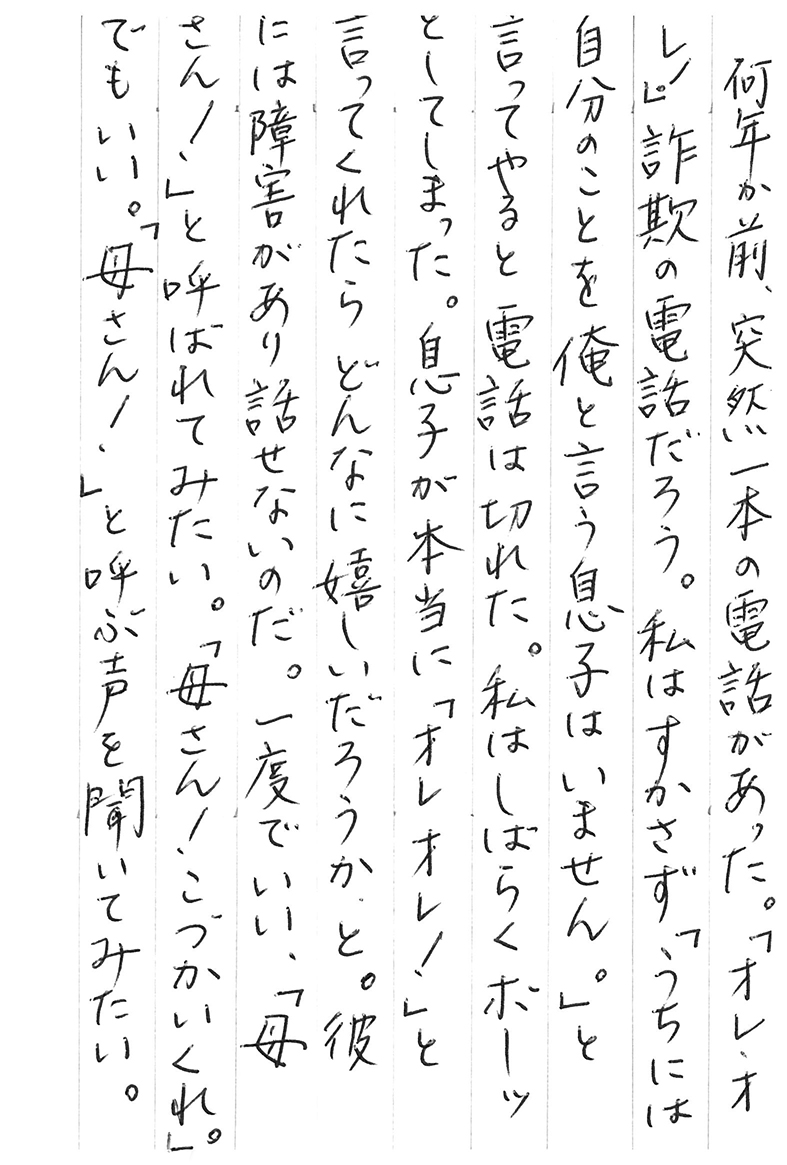 何年か前、突然一本の電話があった。「オレ、オ
レ！」詐欺の電話だろう。私はすかさず、「うちには
自分のことを俺と言う息子はいません。」と
言ってやると電話は切れた。私はしばらくボーッ
としてしまった。息子が本当に「オレオレ！」と
言ってくれたらどんなに嬉しいだろうか、と。彼
には障害があり話せないのだ。一度でいい、「母
さん！」と呼ばれてみたい。「母さん！こづかいくれ」。
でもいい。「母さん！」と呼ぶ声を聞いてみたい。